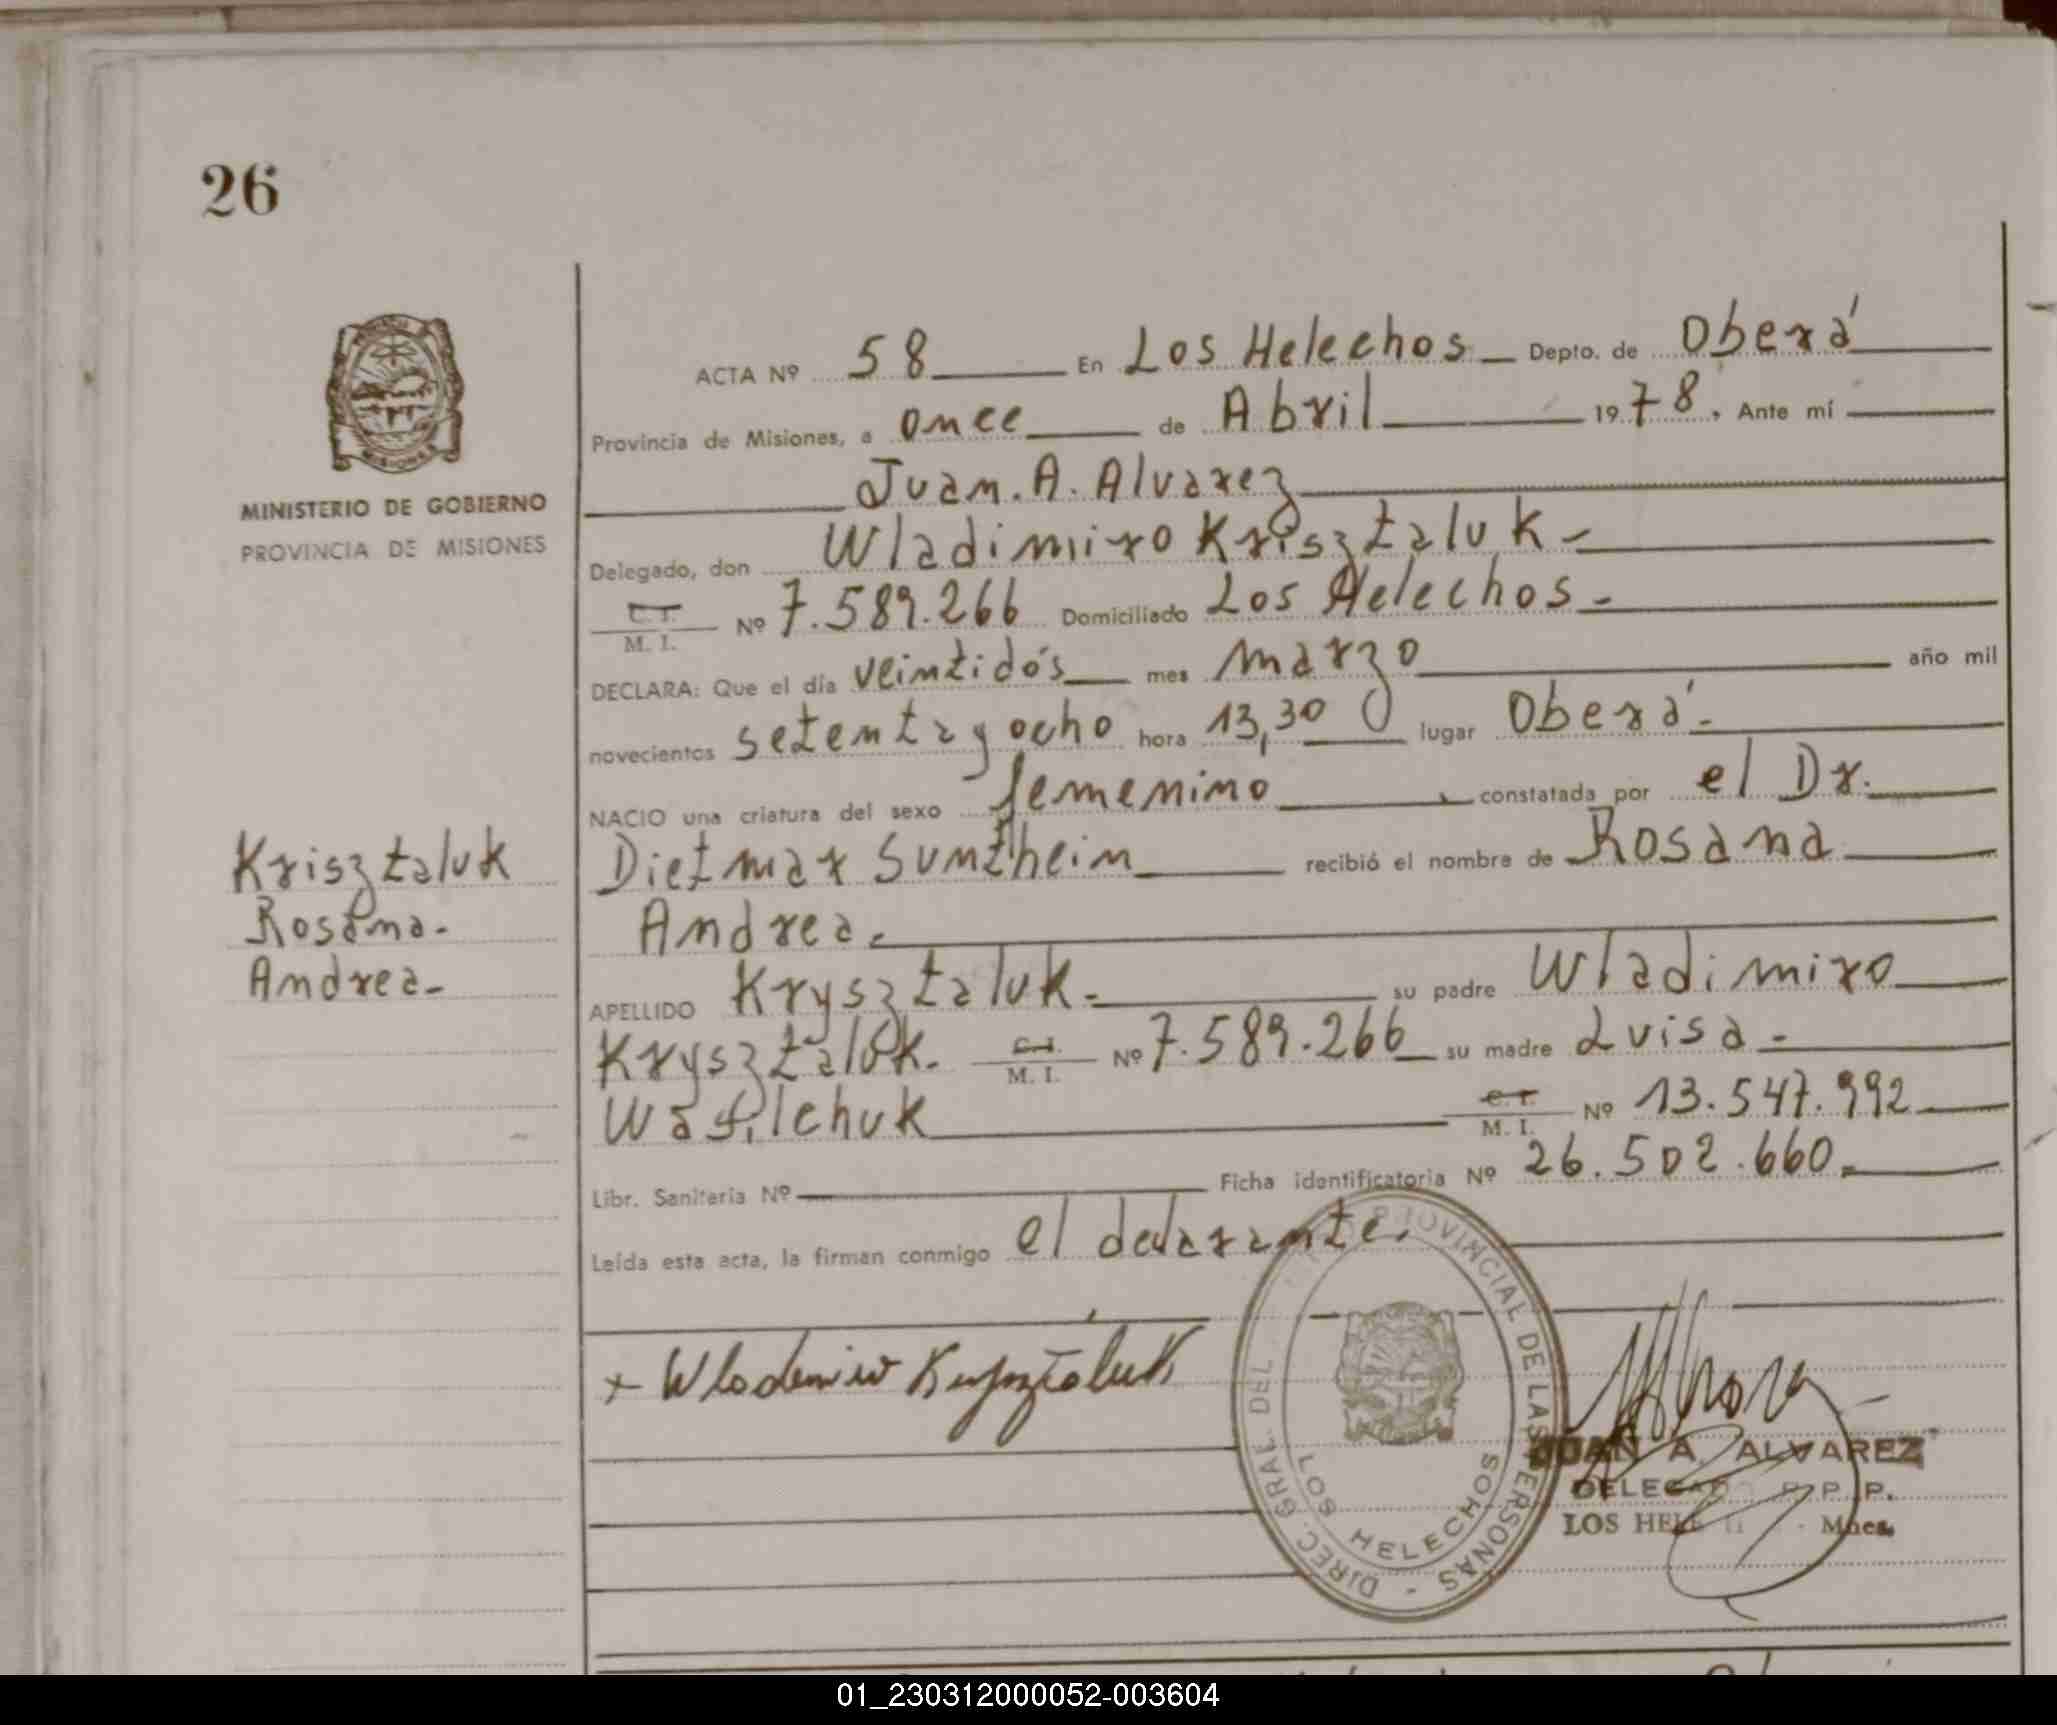 26
MINISTERIO DE GOBIERNO
PROVINCIA DE MISIONES
ACTA Nº 58 En Los Helechos Depto. de Oberá
Provincia de Misiones, a once de Abril 1978, Ante mí
Juan. A. Alvarez
Delegado, don Wladimiro Krisztaluk -
C. I. / M. I. Nº 7.589.266 Domiciliado Los Helechos -
DECLARA: Que el día veintidós mes marzo año mil
novecientos setenta y ocho hora 13,30 lugar Oberá -
NACIO una criatura del sexo femenino constatada por el Dr.
Dietmar Suntheim recibió el nombre de Rosana
Andrea -
APELLIDO Krysztaluk - su padre Wladimiro
Krysztaluk. C. I. / M. I. Nº 7.589.266 su madre Luisa -
Wasilchuk C. I. / M. I. Nº 13.547.992
Libr. Sanitaria Nº Ficha identificatoria Nº 26.502.660.
Leída esta acta, la firman conmigo el declarante.
Krisztaluk
Rosana -
Andrea -
MISIONES
PROVINCIAL DE LAS PERSONAS - DIREC. GRAL. DEL
LOS HELECHOS
JUAN A. ALVAREZ
P. P.
Mnes.
01_230312000052-003604